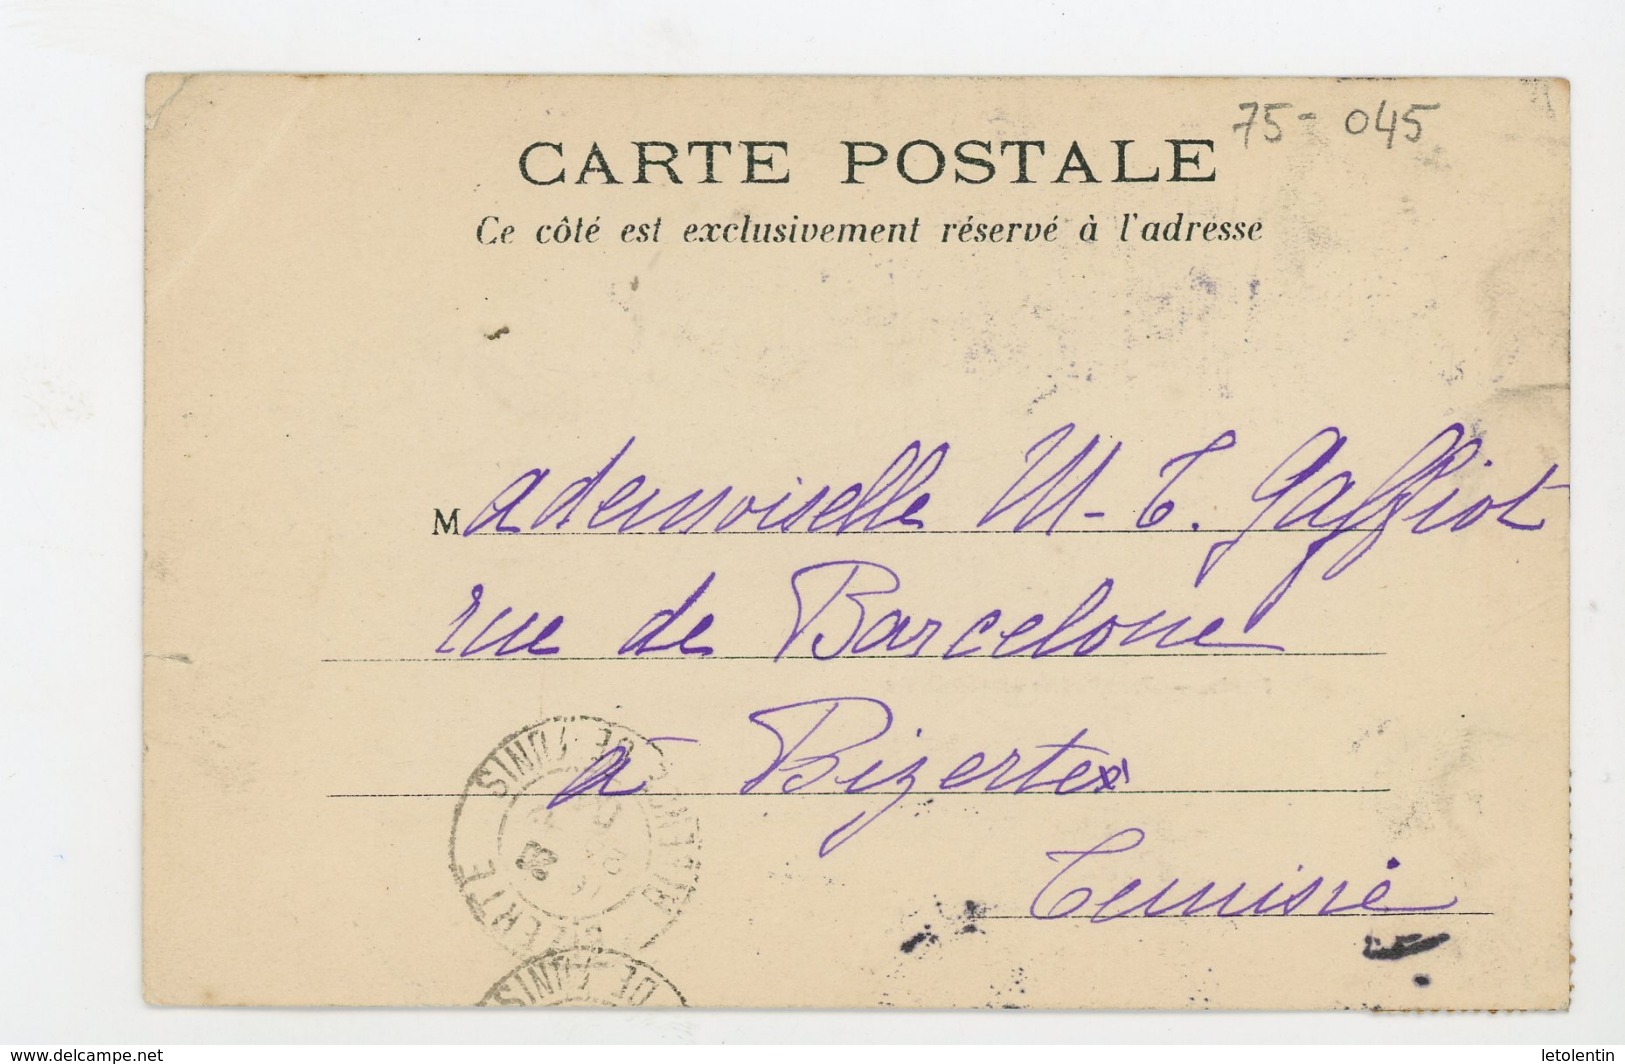 75-045
CARTE POSTALE
Ce côté est exclusivement réservé à l'adresse
Mademoiselle M-T. Gaffiot
rue de Barcelone
à Bizerte
Tunisie
BIZERTE
DE TUNIS
www.delcampe.net
letolentin